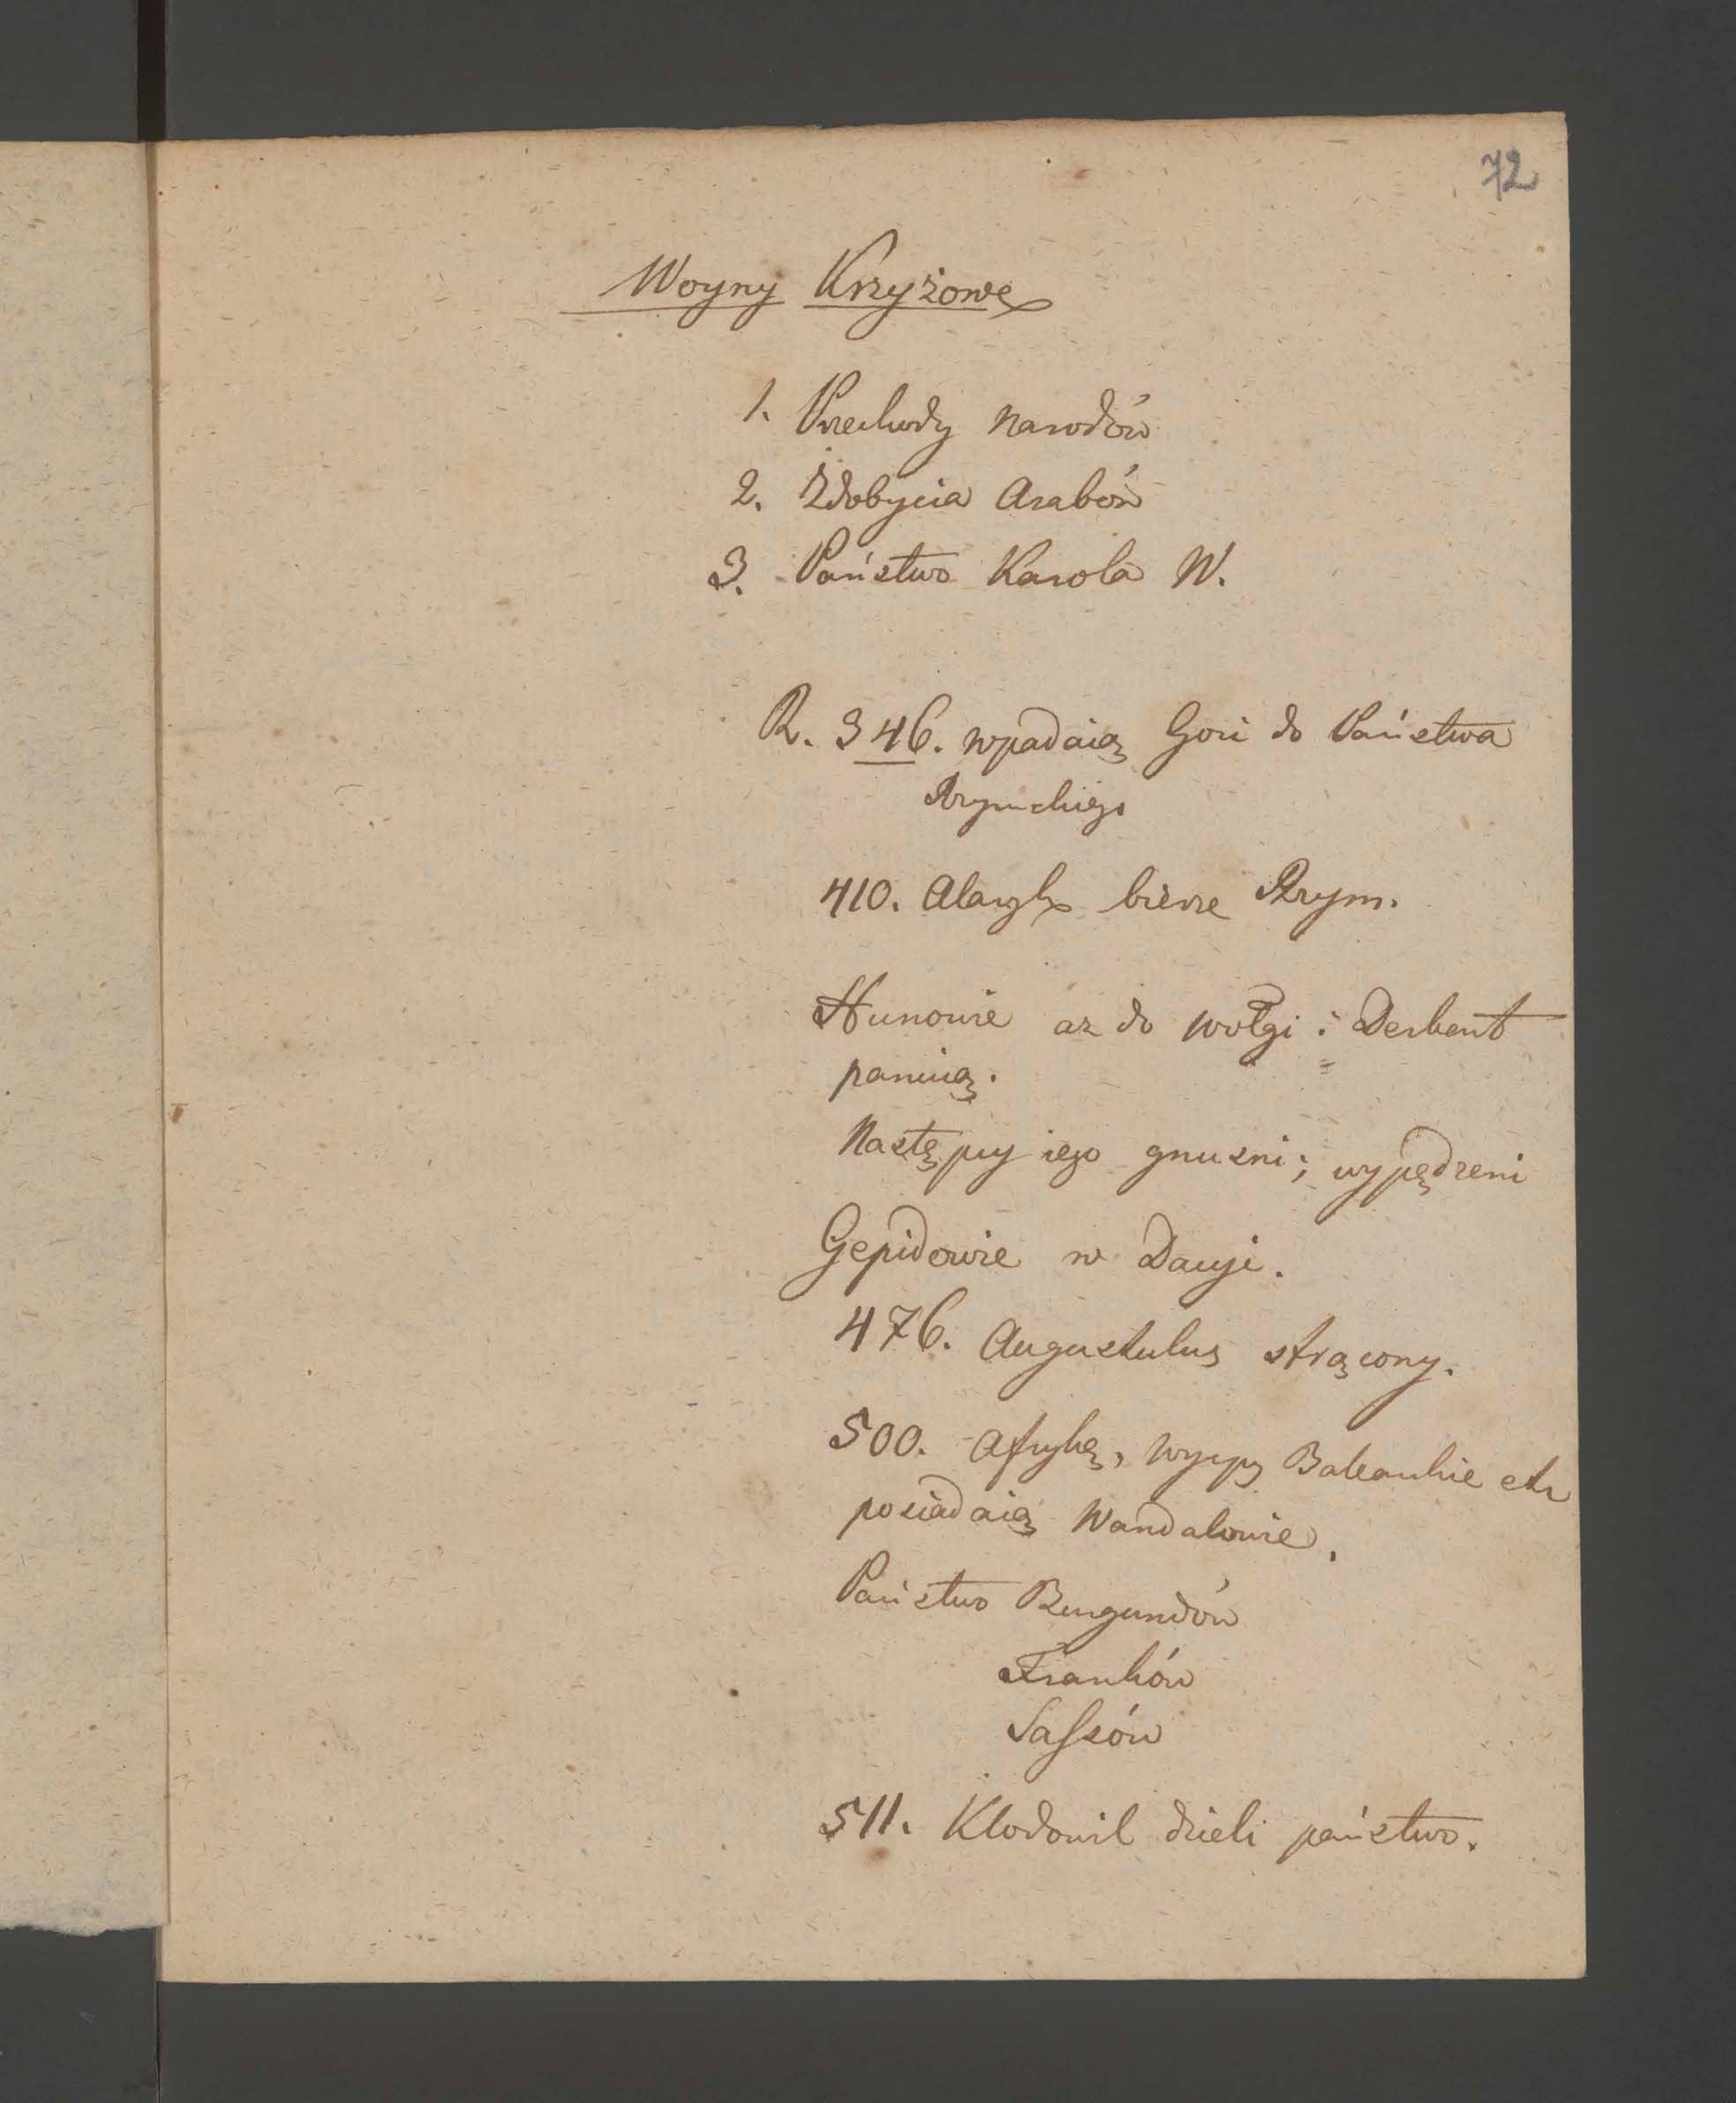 72
Woyny Krzyżowe
1. Przechody Narodów
2. Zdobycia Arabów
3. Państwo Karola W.
R. 346. wpadaią Goci do Państwa
Rzymskiego
410. Alaryk bierze Rzym.
Hunowie az do Wołgi i Derbent
panuią.
Następcy iego gnuzni; wypędzeni
Gepidowie w Dacyi.
476. Augustulus strącony.
500. Afrykę, Wyspy Balearskie etc
posiadaią Wandalowie.
Państwo Burgundów
Franków
Sassów
511. Klodowik dzieli państwo.